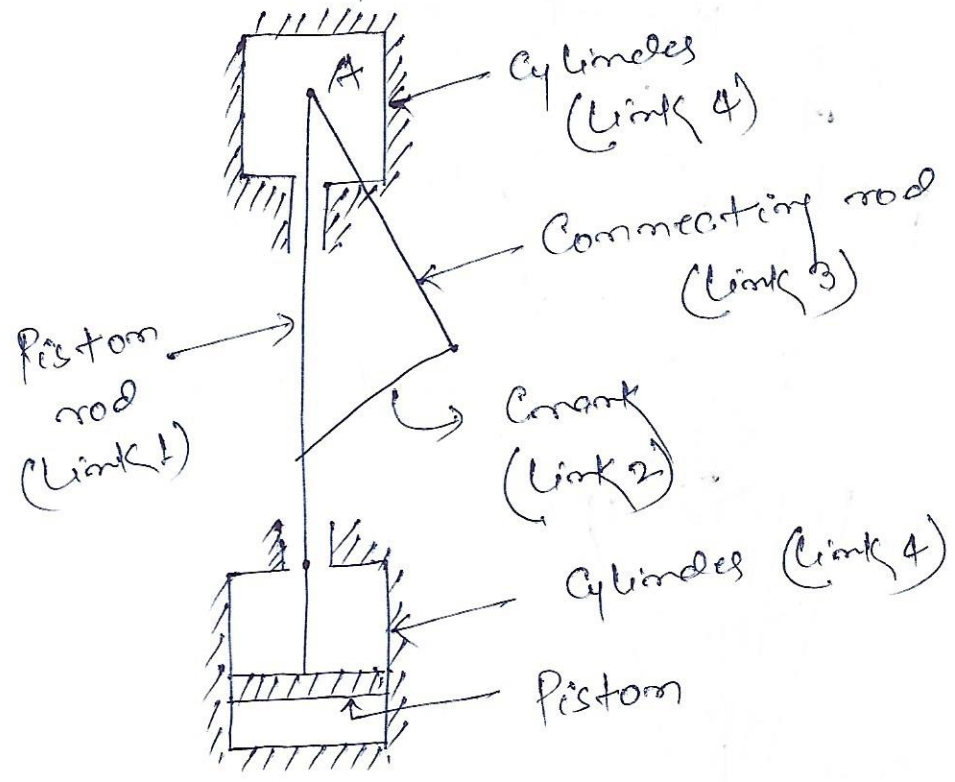 A
Cylinder
(Link 4)
Connecting rod
(Link 3)
Piston
rod
(Link 1)
Crank
(Link 2)
Cylinder (Link 4)
Piston